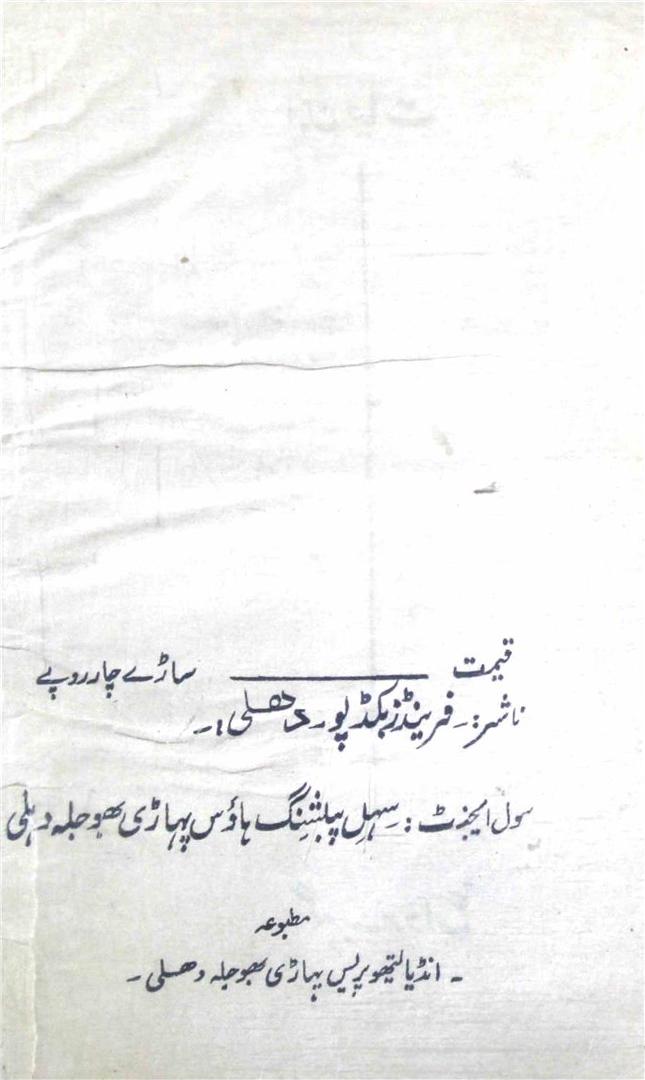 قیمت ــــــــــــ ساڑے چار روپے
ناشر:۔ فرینڈز بکڈپو۔ دھلی ا۔
سول ایجنٹ : سہیل پبلشنگ ہاؤس پہاڑی بھوجلہ دہلی
مطبوعہ
۔ انڈیا لیتھو پریس پہاڑی بھوجلہ دھلی ۔